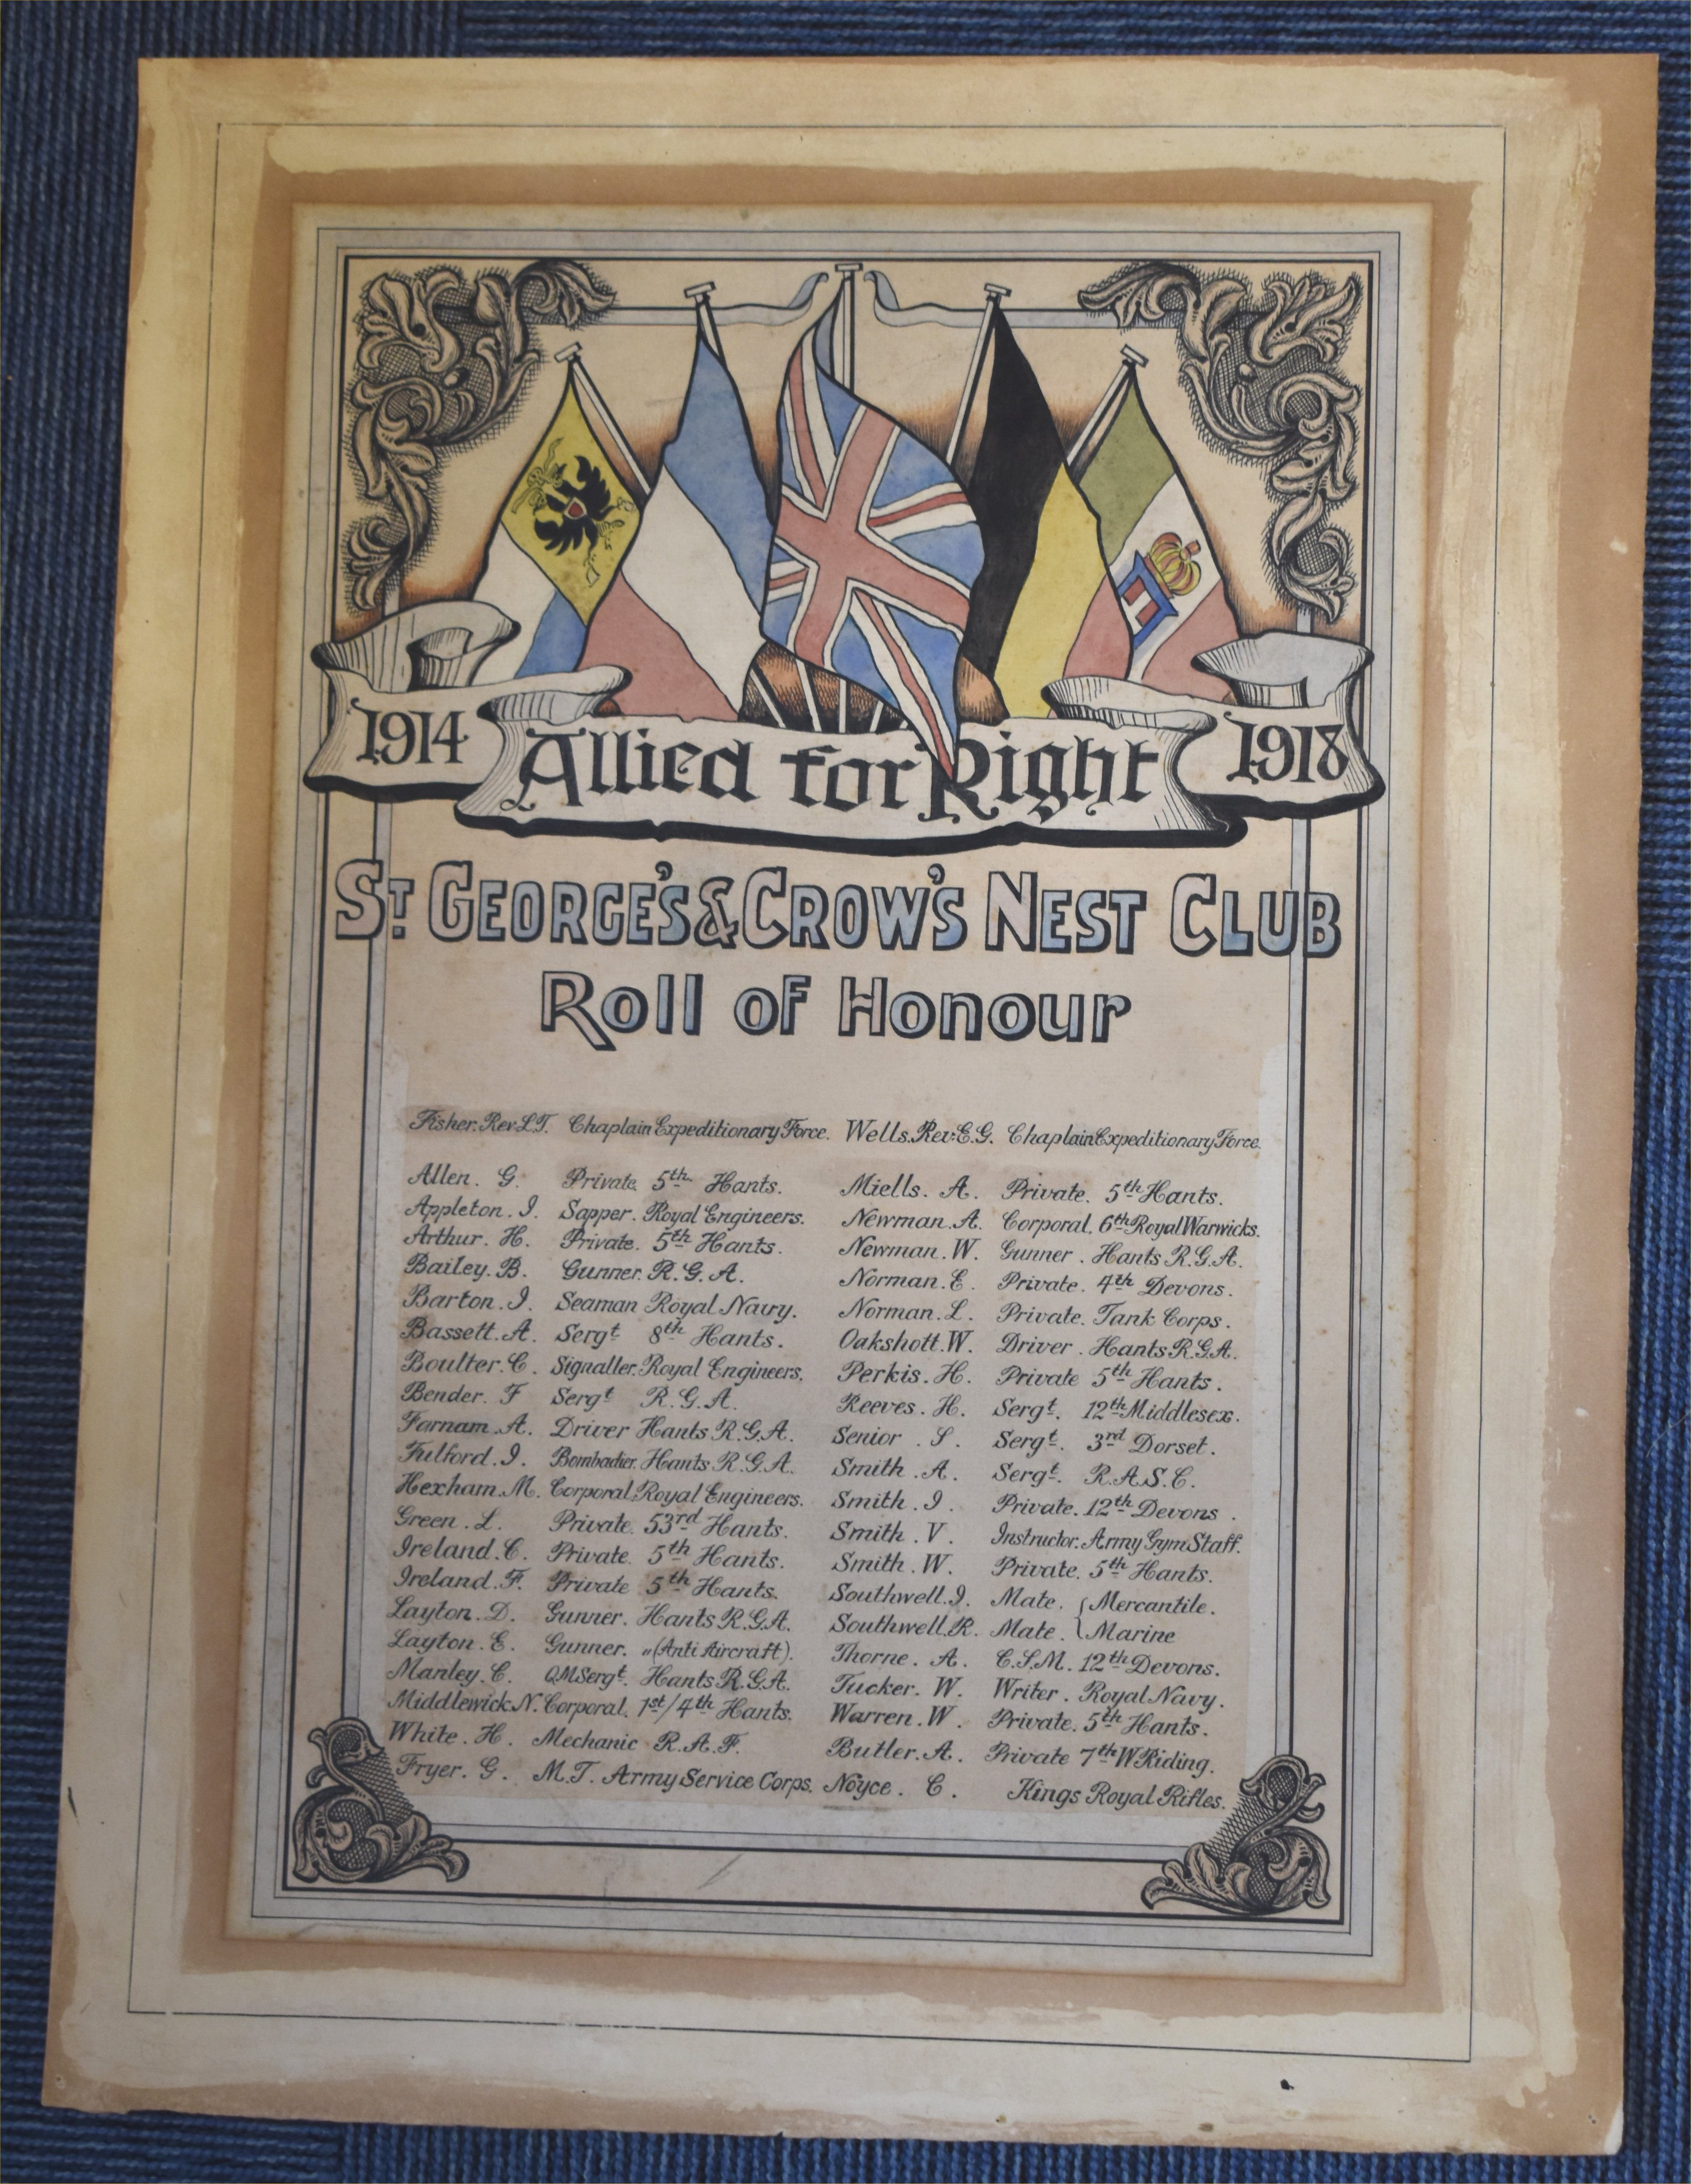 1914 Allied for Right 1918
St. GEORGE'S & CROW'S NEST CLUB
Roll of Honour
Fisher. Rev. L.T. Chaplain Expeditionary Force. Wells. Rev: E.G. Chaplain Expeditionary Force.
Allen. G. Private 5th Hants.
Appleton. I. Sapper. Royal Engineers.
Arthur. H. Private. 5th Hants.
Bailey. B. Gunner. R.G.A.
Barton. I. Seaman Royal Navy.
Bassett. A. Sergt 8th Hants.
Boulter. C. Signaller. Royal Engineers.
Bender. F Sergt R.G.A.
Farnam. A. Driver Hants R.G.A.
Fulford. I. Bombadier. Hants R.G.A.
Hexham. M. Corporal. Royal Engineers.
Green. L. Private. 53rd Hants.
Ireland. C. Private. 5th Hants.
Ireland. F. Private 5th Hants.
Layton. D. Gunner. Hants R.G.A.
Layton. E. Gunner. „ (Anti Aircraft).
Manley. C. Q.M Sergt. Hants R.G.A.
Middlewick N. Corporal. 1st/4th Hants.
White. H. Mechanic R.A.F.
Fryer. G. M.T. Army Service Corps.
Miells. A. Private. 5th Hants.
Newman. A. Corporal. 6th Royal Warwicks.
Newman. W. Gunner. Hants R.G.A.
Norman. E. Private. 4th Devons.
Norman. L. Private. Tank Corps.
Oakshott. W. Driver. Hants R.G.A.
Perkis. H. Private 5th Hants.
Reeves. H. Sergt. 12th Middlesex.
Senior. S. Sergt. 3rd Dorset.
Smith. A. Sergt. R.A.S.C.
Smith. I. Private. 12th Devons.
Smith. V. Instructor. Army Gym Staff.
Smith. W. Private. 5th Hants.
Southwell. I. Mate. { Mercantile.
Southwell. R. Mate. { Marine
Thorne. A. C.S.M. 12th Devons.
Tucker. W. Writer. Royal Navy.
Warren. W. Private. 5th Hants.
Butler. A. Private 7th W Riding.
Noyce. C. Kings Royal Rifles.